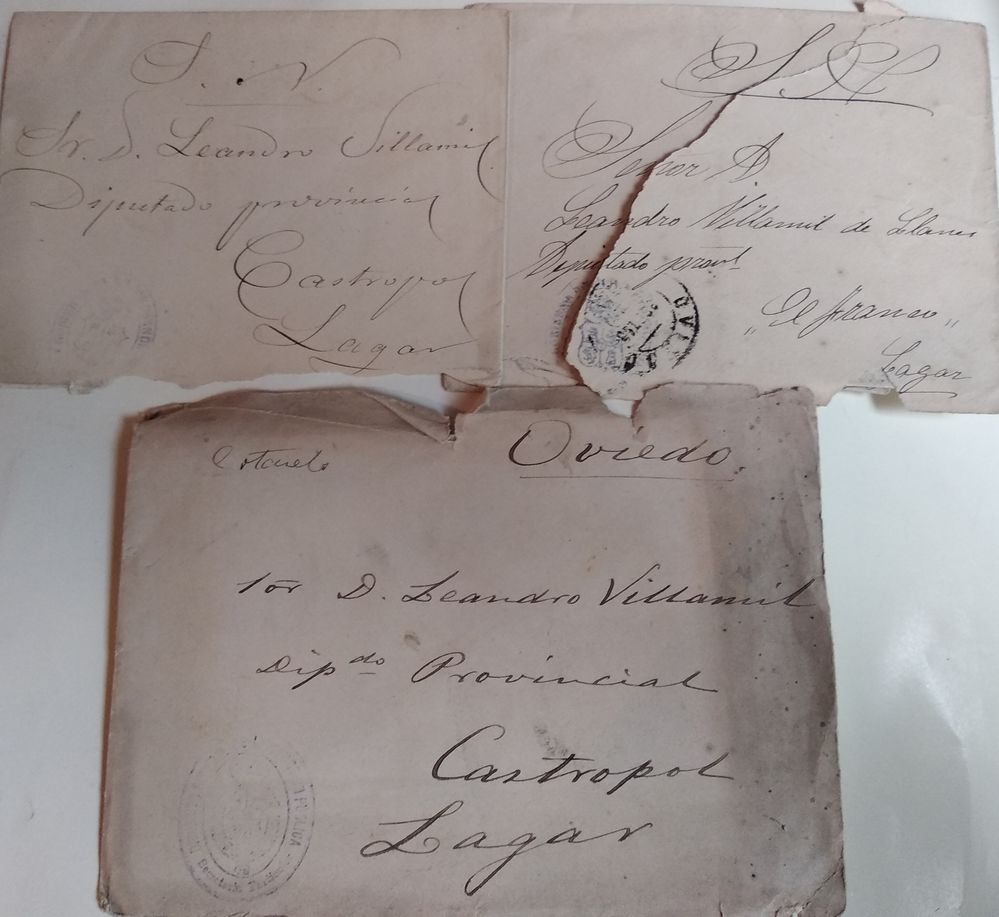 S. N.
Sr. D. Leandro Villamil
Diputado provincial
Castropol
Lagar
S. N.
Señor D
Leandro Villamil de Llanes
Diputado provl
"El Franco"
Lagar
OVI
Oviedo.
Sor D. Leandro Villamil
Dipdo Provincial
Castropol
Lagar